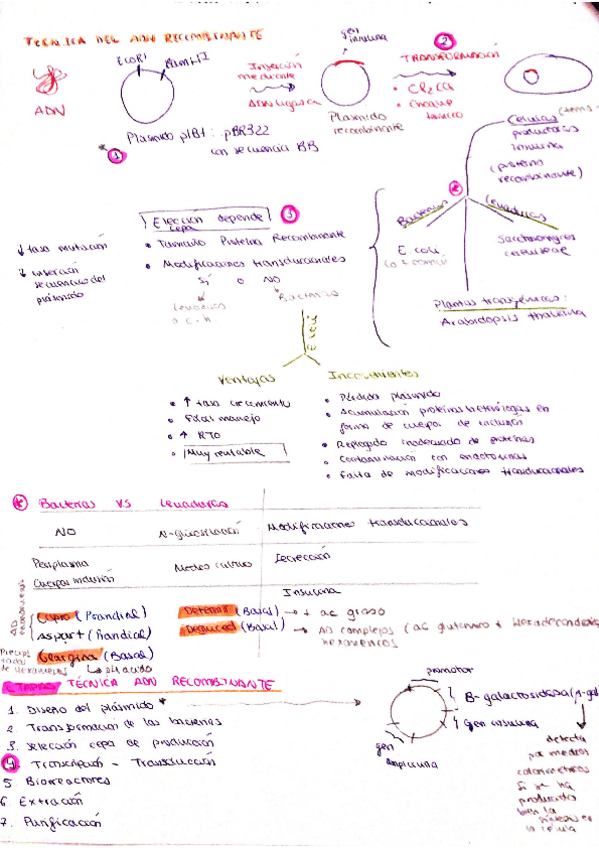 TÉCNICA DEL ADN RECOMBINANTE
ADN
EcoRI
BamHI
Plásmido pIBI : pBR322
con secuencia BB
1
Inserción
mediante
ADN ligasa
gen
insulina
Plásmido
recombinante
2
TRANSFORMACIÓN
• Cl2Ca
• Choque
térmico
Células
productoras
insulina
(proteína
recombinante)
Bacterias
E. coli
Levaduras
Saccharomyces
cerevisiae
Plantas transgénicas:
Arabidopsis thaliana
Elección depende
cepa
3
• Tamaño Proteína Recombinante
• Modificaciones transduccionales
Sí o NO
Levaduras
o c. h
Bacterias
↓ tasa mutación
↓ inserción
secuencias del
plásmido
E. coli
Ventajas
• ↑ tasa crecimiento
• Fácil manejo
• ↑ RTO
• Muy rentable
Inconvenientes
• Pérdida plásmido
• Acumulación proteínas heterólogas en
forma de cuerpos de inclusión
• Replegado inadecuado de proteínas
• Contaminación con endotoxinas
• Falta de modificaciones transduccionales
Bacterias VS Levaduras
NO N-glicosilación Modificaciones transduccionales
Periplasma Medios cultivo Secreción
Cuerpos inclusión
Insulina
Lispro (Prandial) Detemir (Basal) → + ac graso
Aspart (Prandial) Degludec (Basal) → AD complejos (ac glutámico + Hexadecanodioico
hexaméricos
Glargina (Basal)
ETAPAS TÉCNICA ADN RECOMBINANTE
1. Diseño del plásmido *
2. Transformación de las bacterias
3. Selección cepa de producción
4. Transcripción - Transducción
5. Bioreactores
6. Extracción
7. Purificación
promotor
B-galactosidasa
gen insulina
gen
ampicilina
detecta
por medios
colorimétricos
si se ha
producido
bien la
síntesis en
la célula